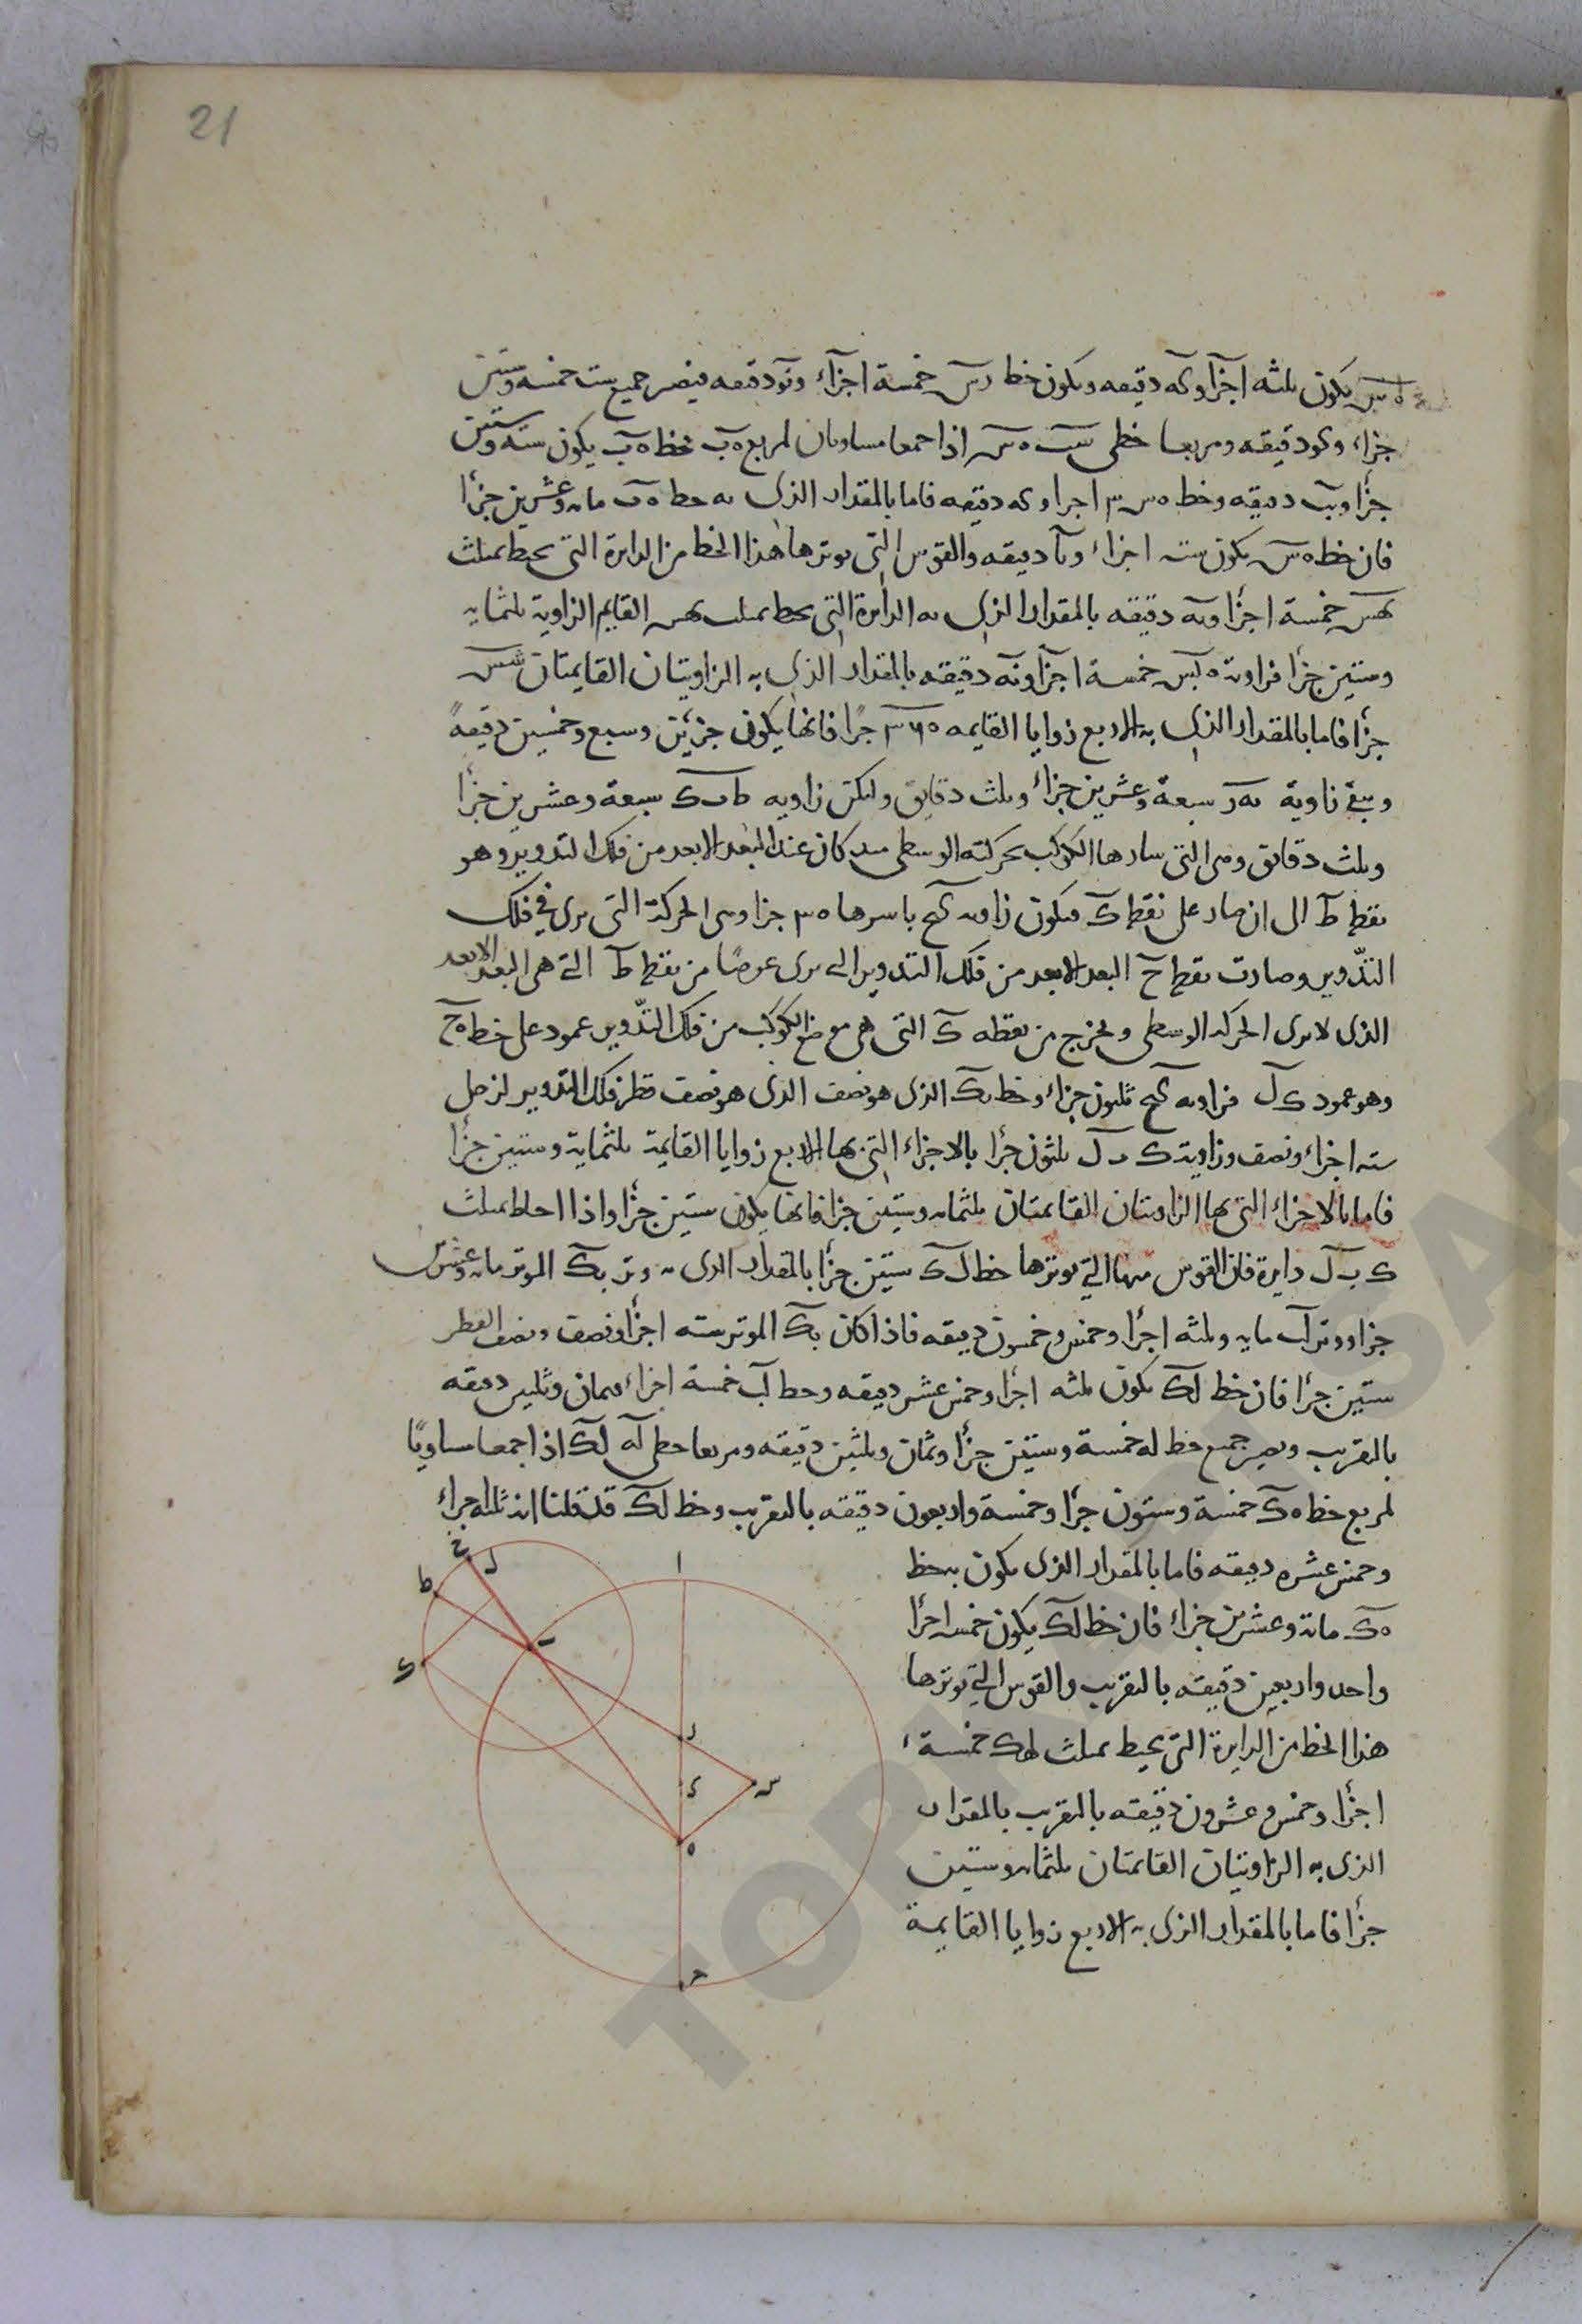 21
ه س يكون ثلثه اجزآ وكه دقيقه ويكون خط رس خمسة اجزآء ونو دقيقه فيصير جميع ست خمسه وستين
جزاء وكو دقيقه ومربعا خطى س ه س اذا جمعا مساويان لمربع ه ب فخط ه ب يكون سته وستين
جزأ ويب دقيقه وخط ه س ٣ اجزا وكه دقيقه فاما بالمقدار الذى به خط ه ب مايه وعشرين جزأ
فان خط ه س يكون سته اجزاء ويآ دقيقه والقوس التى يوترها هذا الخط من الدايرة التى يحيط بمثلث
بهس خمسة اجزأ ومه دقيقه بالمقدار الذى به الدايرة التى يحيط بمثلث بهس القايم الزاوية ثلثمايه
وستين جزأ فزاوية ه بس خمسة اجزآ ونه دقيقه بالمقدار الذى به الزاويتان القايمتان شس
جزأ فاما بالمقدار الذى به الاربع زوايا القايمه ٣٦٥ جزأ فانها يكون جزئين وسبع وخمسين دقيقةً
وبقى زاوية بهر سبعة وعشرين جزاء وثلث دقايق ولتكن زاويه ط ب ك سبعة وعشرين جزأ
وثلث دقايق وهى التى سارها الكوكب بحركته الوسطى منذ كان عند البعد الابعد من فلك التدوير وهو
نقطة ط الى ان صار على نقطة ك فيكون زاويه كبح باسرها ٣٥ جزا وهى الحركة التى يرى فى فلك
التدّوير وصارت نقطة ح البعد الابعد من فلك التدوير الى يرى عوضًا من نقطة ط التى هى البعد الابعد
الذى لا يرى الحركه الوسطى ويخرج من نقطه ك التى هى موضع الكوكب من فلك التدّوير عمود على خط ه ح
وهو عمود ك ل فزاويه كبح ثلثون جزاء وخط بك الذى هو نصف الذى هو نصف قطر فلك التدوير لزحل
سته اجزاء ونصف وزاوية ك ب ل ثلثون جزأ بالاجزاء التى بها الاربع زوايا القايمة ثلثماية وستين جزأ
فاما بالاجزاء التى بها الزاويتان القايمتان ثلثمايه وستين جزا فانها يكون ستين جزأ واذا احاط بمثلث
ك ب ل دايرة فان القوس منها التى يوترها خط ل ك ستين جزأ بالمقدار الذى به وتر بك الموتر مايه وعشرين
جزا ووتر لب مايه وثلثه اجزأ وخمس وخمسون دقيقه فاذا كان بك الموتر سته اجزأ ونصف ونصف القطر
ستين جزأ فان خط لك يكون ثلثه اجزأ وخمس عشر دقيقه وخط لب خمسة اجزاء وثمان وثلثين دقيقه
بالتقريب ويصير جميع خط له خمسة وستين جزأ وثمان وثلثين دقيقه ومربعا خطى له لك اذا جمعا مساويًا
لمربع خط ه ك خمسة وستون جزأ وخمسة واربعون دقيقه بالتقريب وخط لك قد قلنا انه ثلثه اجزاء
وخمس عشره دقيقه فاما بالمقدار الذى يكون به خط
ه ك ماية وعشرين جزاء فان خط لك يكون خمسه اجزأ
واحد واربعين دقيقه بالتقريب والقوس التى يوترها
هذا الخط من الدايرة التى يحيط بمثلث لهك خمسة
اجزأ وخمس وعشرون دقيقه بالتقريب بالمقدار
الذى به الزاويتان القايمتان ثلثمايه وستين
جزأ فاما بالمقدار الذى به الاربع زوايا القايمة
ح ل ا
ط
ب
ك
ر
س
ه
ج